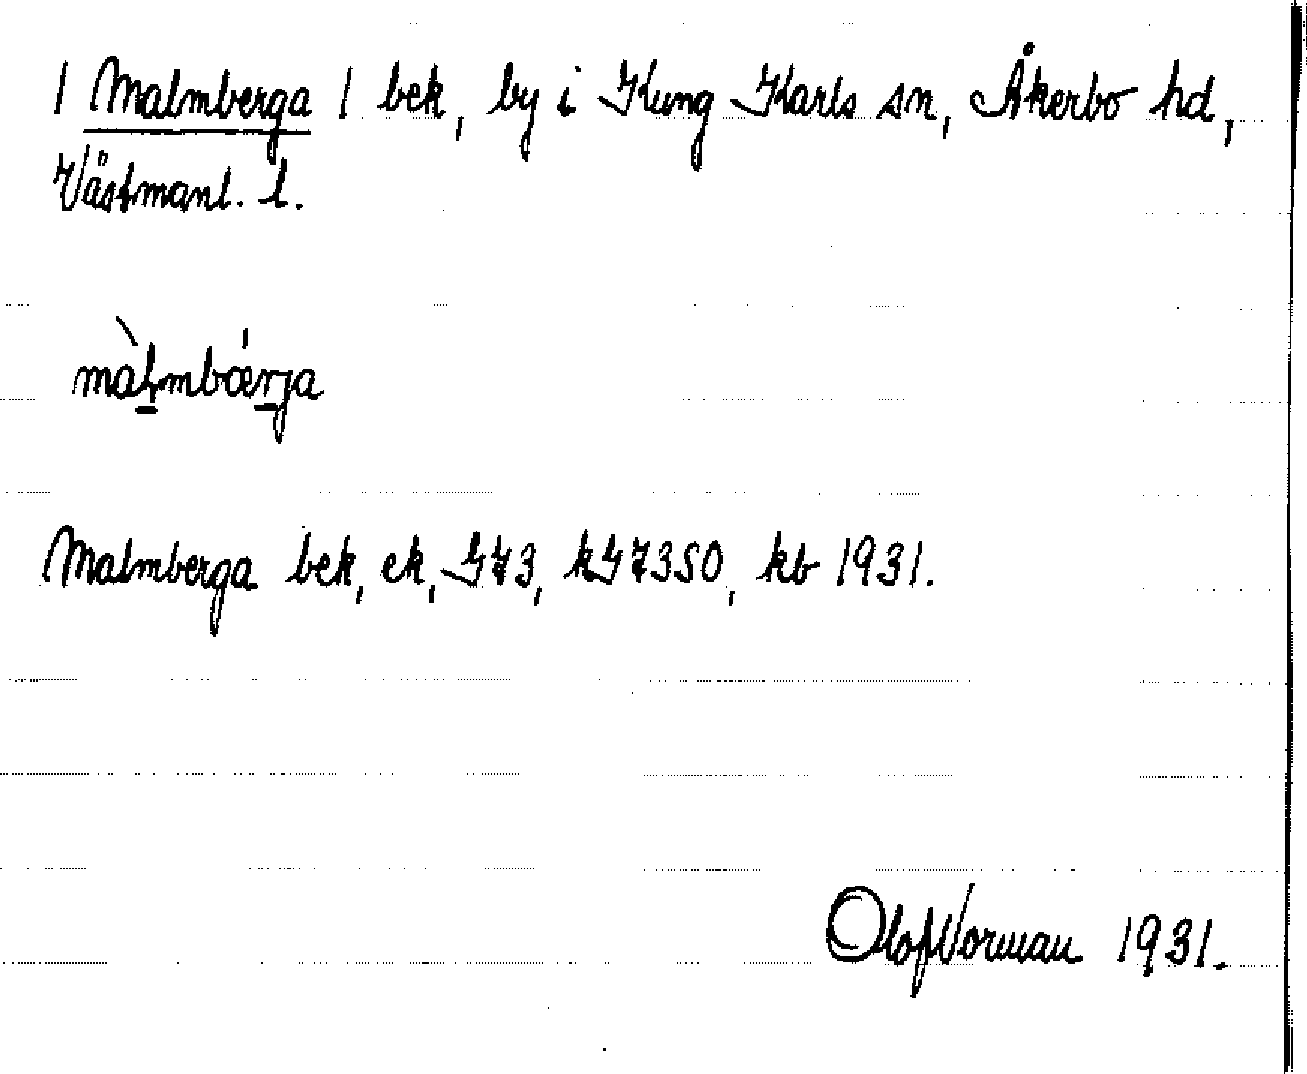 / Malmberga / bek, by i Kung Karls sn, Åkerbo hd,
Västmanl. l.
màlmbǽrja
Malmberga bek, ek, G73, kG7350, kb 1931.
Olof Vorman 1931.